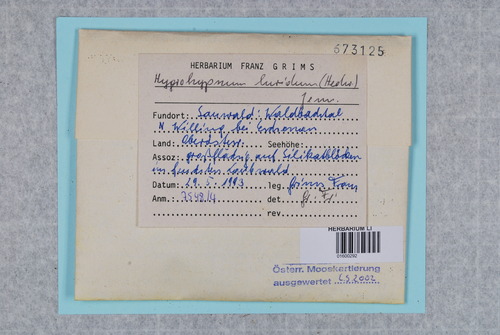 673125
HERBARIUM FRANZ GRIMS
Hygrohypnum luridum (Hedw.)
Jenn.
Fundort: Sauwald: Waldbachtal
N Willing bei
Land: Oberösterr. Seehöhe:
Assoz: großflächig auf Silikatblöcken
im feuchten Laubwald
Datum: 19. 5. 1993 leg. Grims Franz
Anm.: 7548/4 det. Gr. F.
rev.
HERBARIUM LI
Österr. Mooskartierung
ausgewertet LS 2002